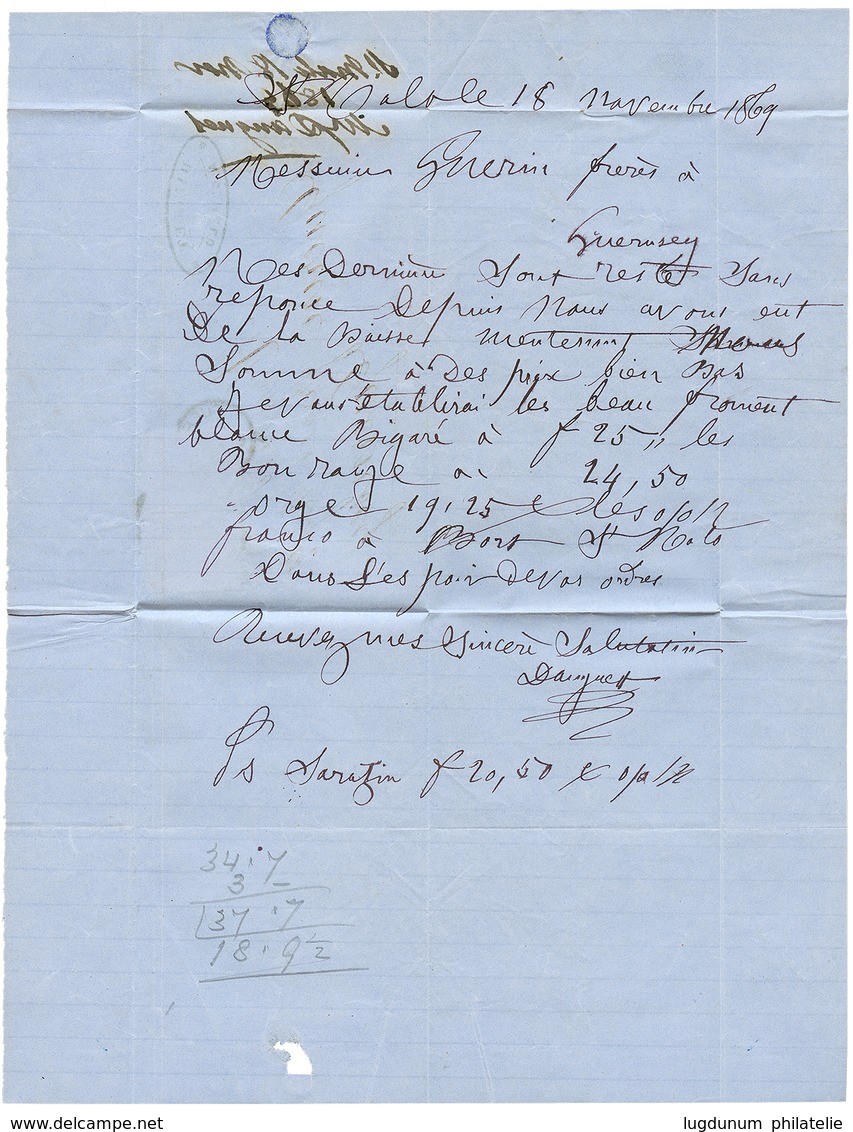 St Malo le 18 Novembre 1869
Messieurs Guerin frères à
Guernsey
Mes Dernière Sont resté Sans
reponce Depuis Nous avons eut
De la Baisse, mentenent
Somme à Des prix bien Bas
Je vous établirai les beau froment
blanc Bigaré à f 25 ,, les
Bon rouge à 24,50
orge 19,25 les 0/0 K
franco à Bort St Malo
Dans L'es poir De vos ordres
Recevez mes Sincere Salutation
Dauguet
Ps Sarazin f 20,50 0/0 K
34.7
3 –
37.7
18.9½
www.delcampe.net
lugdunum philatelie